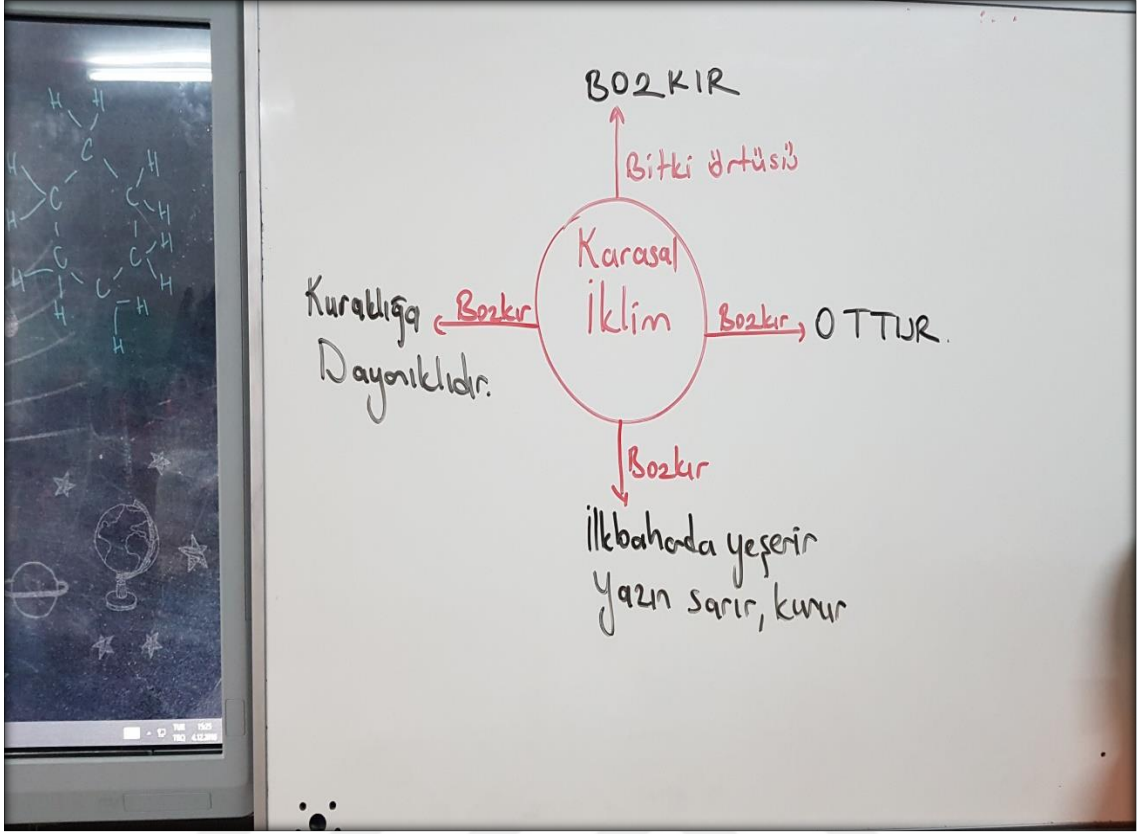 BOZKIR
Bitki örtüsü
Karasal
İklim
Kuraklığa
Dayanıklıdır.
Bozkır
Bozkır
OTTUR.
Bozkır
İlkbaharda yeşerir
Yazın sarır, kurur
H H
C
H H
C C
H H
H
C C
H C H
H H
H
TUR 15:25
TRQ 4.12.2018